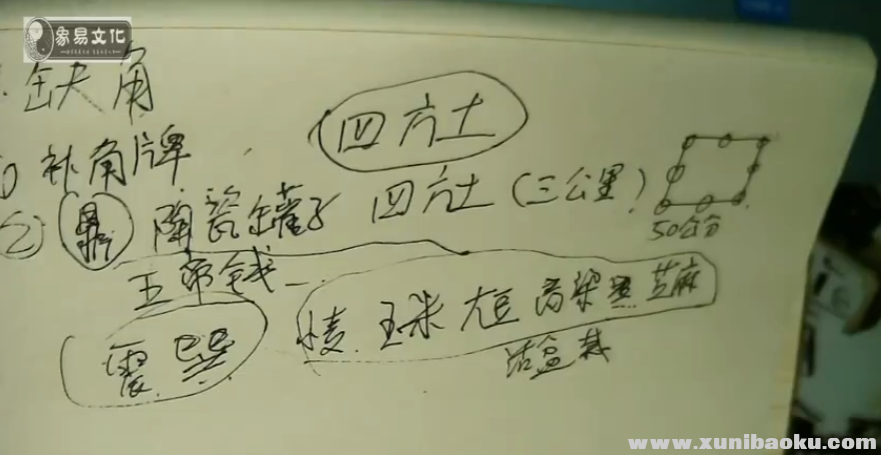 象易文化
缺角
补角牌
四方土
② 鼎 陶瓷罐子 四方土 (三公里)
50公分
五帝钱
震 巽
小麦 玉米 大豆 高粱 黑芝麻
www.xunibaoku.com